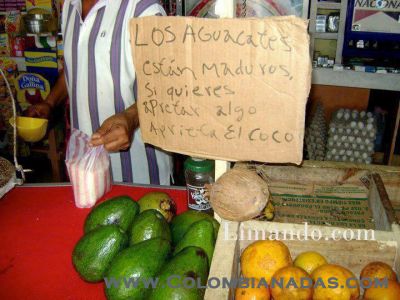 Los Aguacates
están maduros,
si quieres
apretar algo
Aprieta El Coco
NACONA
Doña
Gallina
Limando.com
www.Colombianadas.com